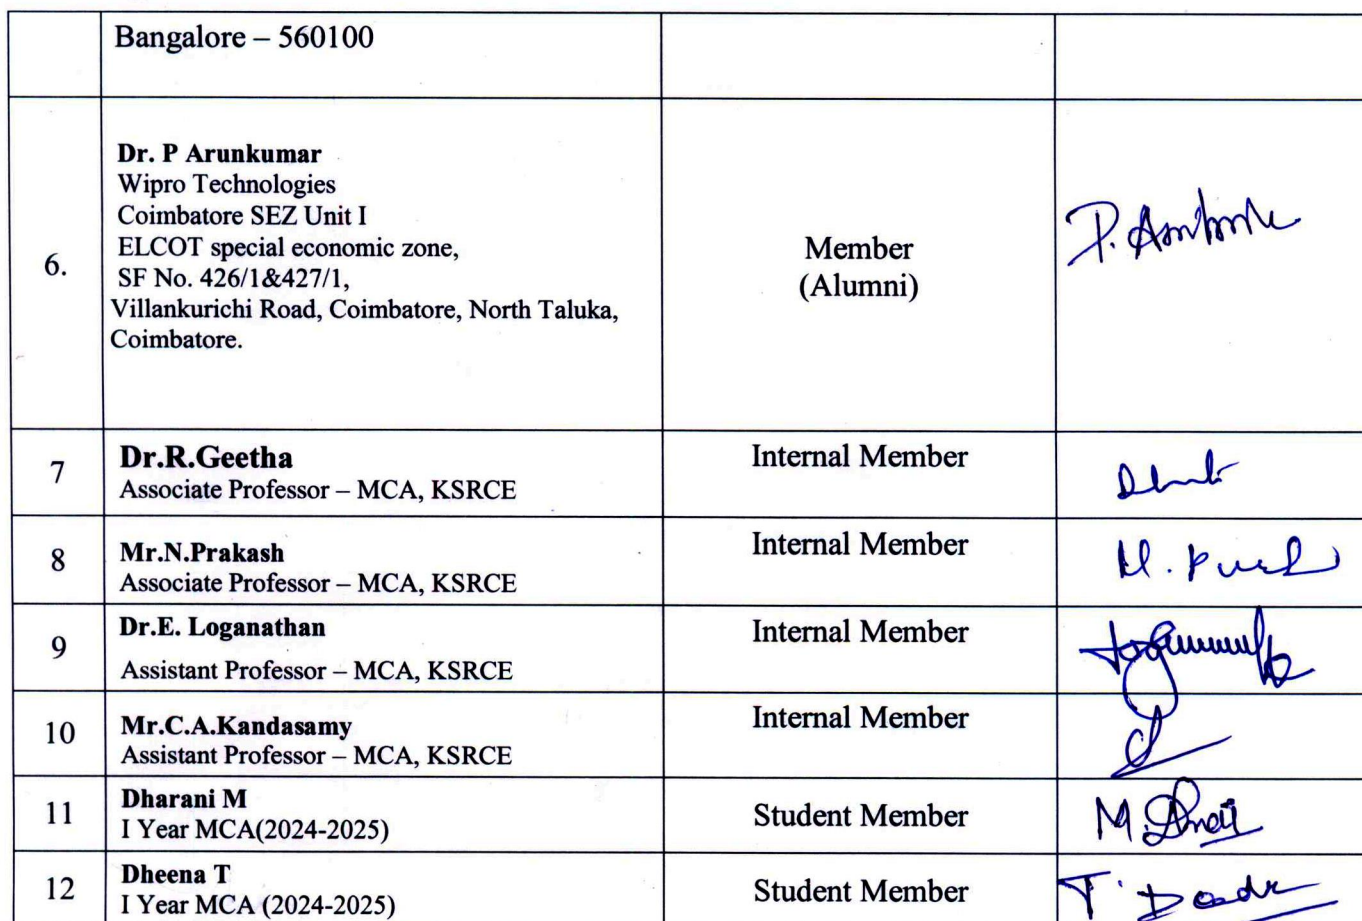 Bangalore – 560100
6.
Dr. P Arunkumar
Wipro Technologies
Coimbatore SEZ Unit I
ELCOT special economic zone,
SF No. 426/1&427/1,
Villankurichi Road, Coimbatore, North Taluka,
Coimbatore.
Member
(Alumni)
7
Dr.R.Geetha
Associate Professor – MCA, KSRCE
Internal Member
8
Mr.N.Prakash
Associate Professor – MCA, KSRCE
Internal Member
9
Dr.E. Loganathan
Assistant Professor – MCA, KSRCE
Internal Member
10
Mr.C.A.Kandasamy
Assistant Professor – MCA, KSRCE
Internal Member
11
Dharani M
I Year MCA(2024-2025)
Student Member
12
Dheena T
I Year MCA (2024-2025)
Student Member